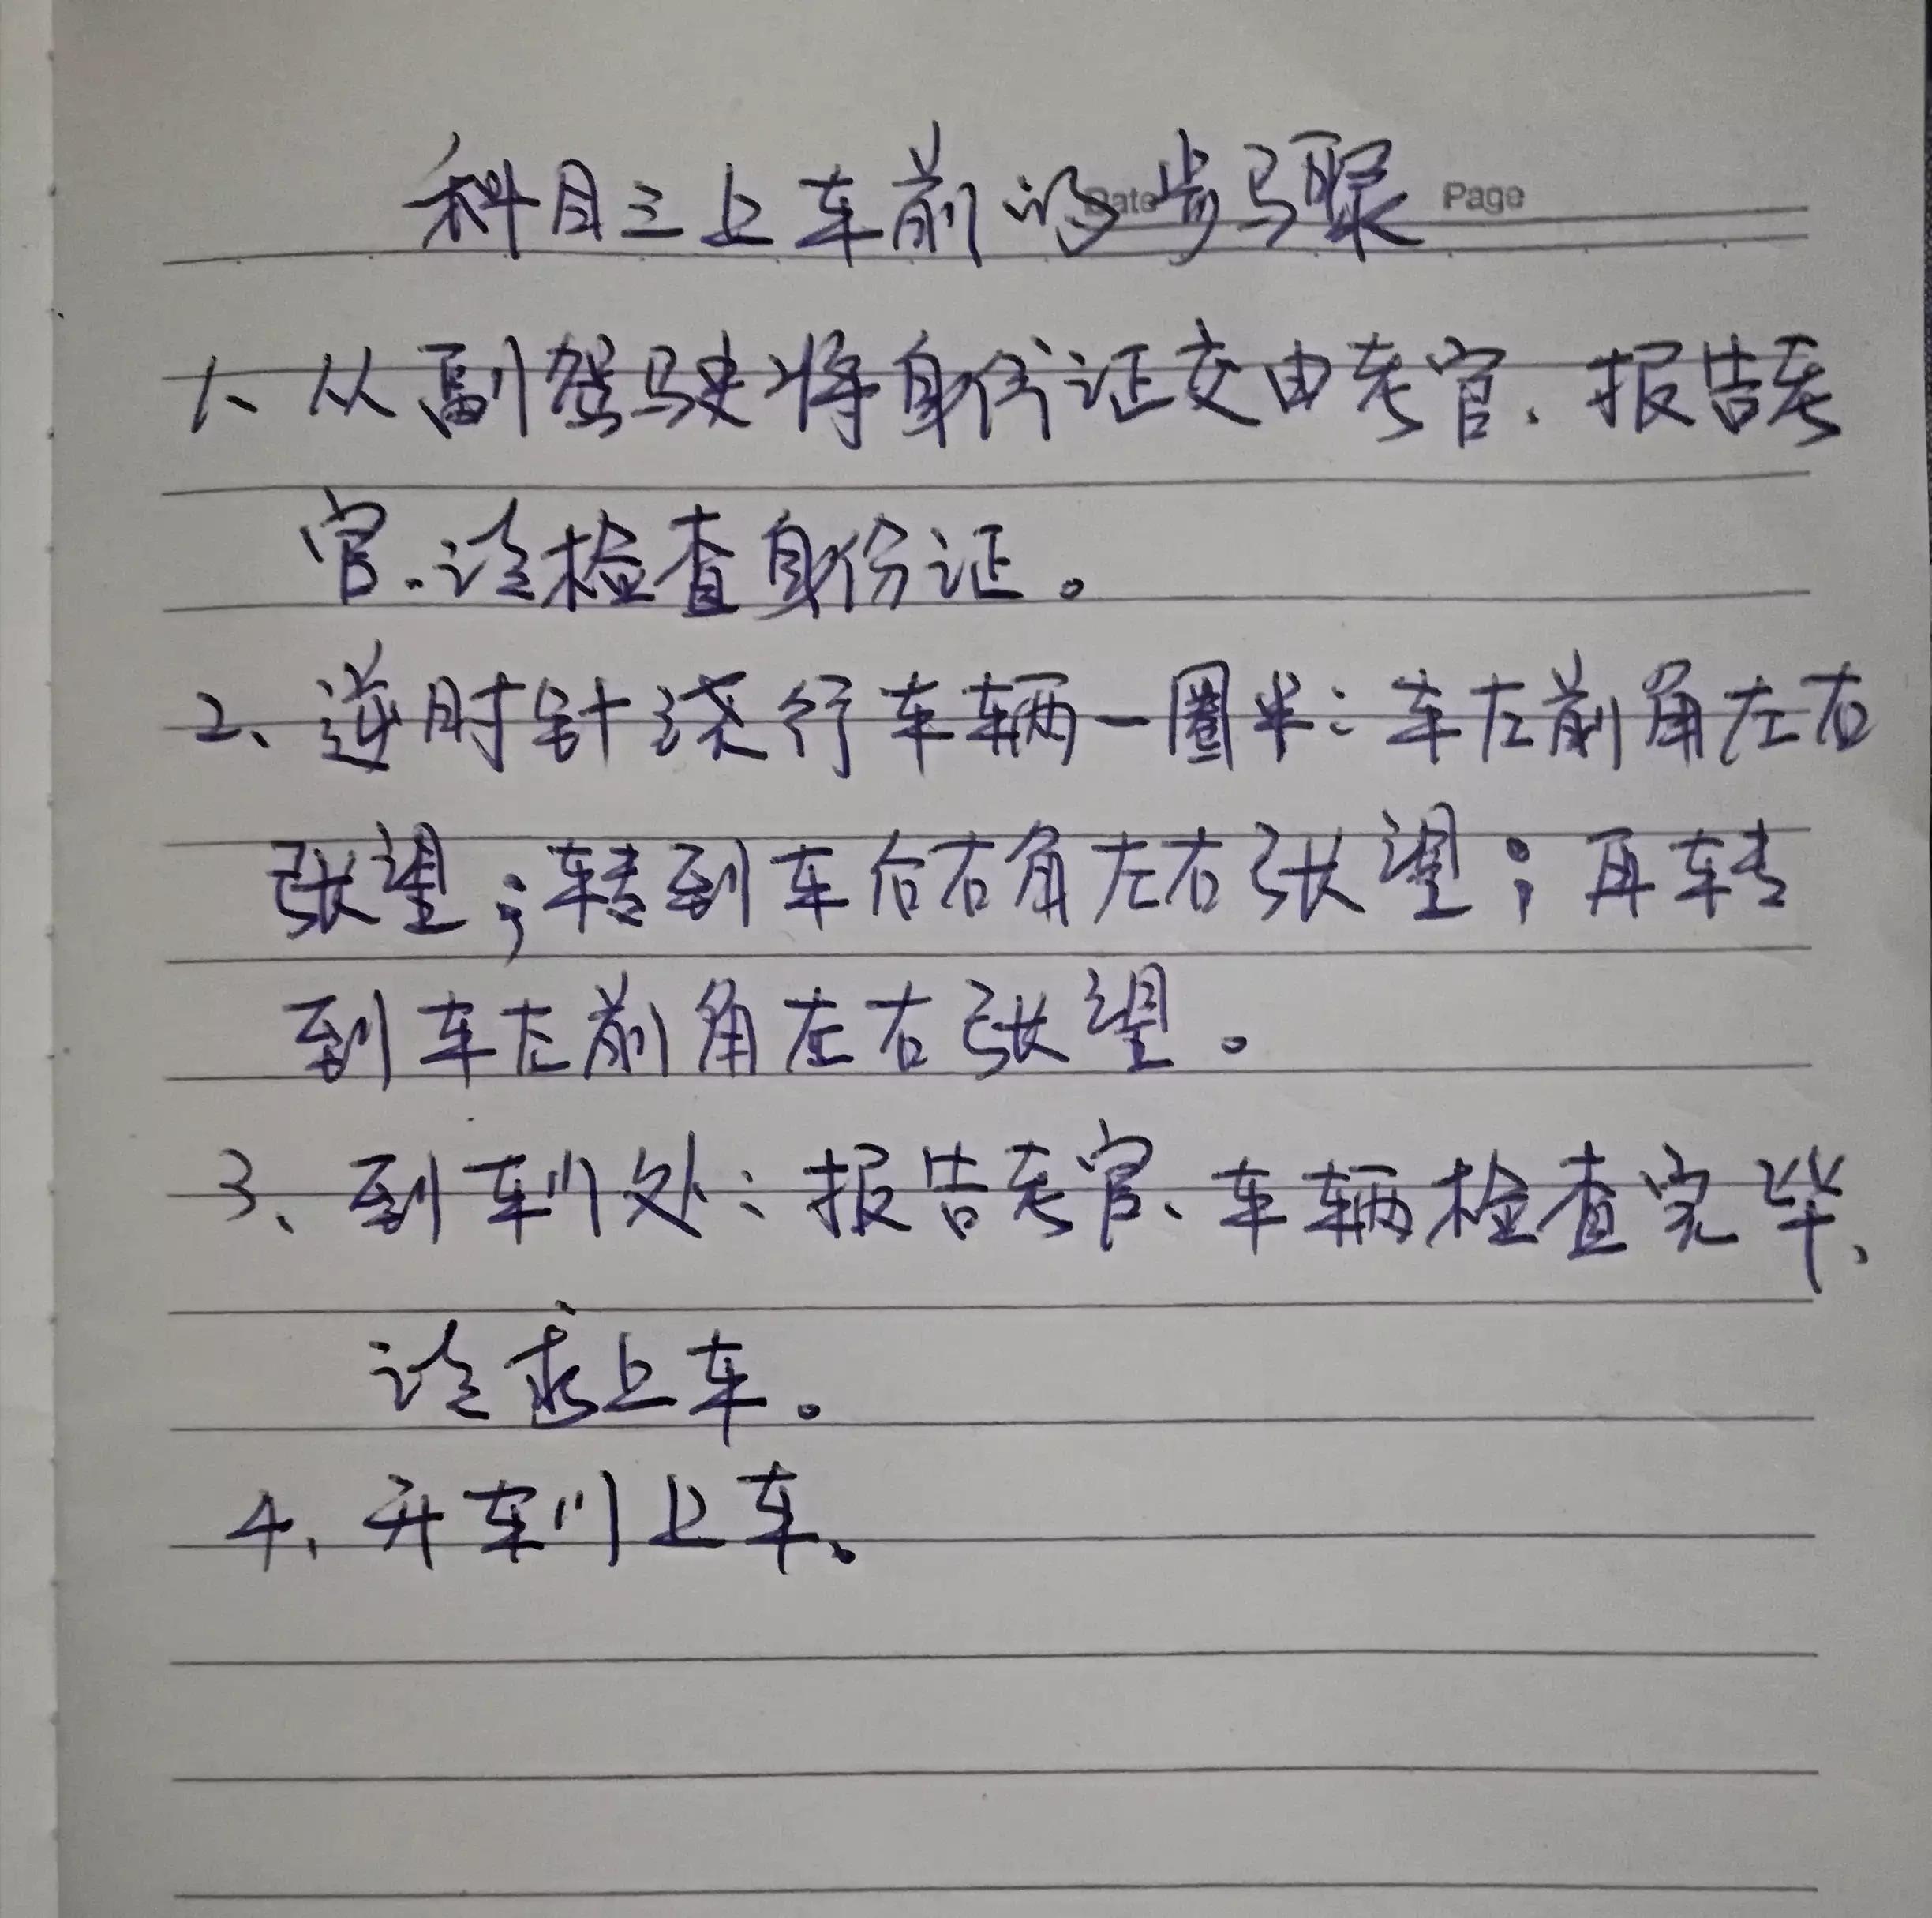 科目三上车前的步骤
Date Page
1、从副驾驶将身份证交由考官、报告考
官、请检查身份证。
2、逆时针绕行车辆一圈半：车左前角左右
张望；转到车后右角左右张望；再转
到车左前角左右张望。
3、到车门处：报告考官、车辆检查完毕、
请求上车。
4、开车门上车。